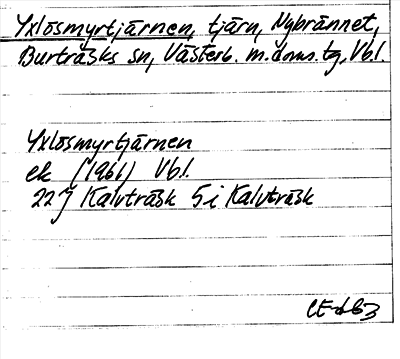 Yxlösmyrtjärnen, tjärn, Nybrännet,
Burträsks sn, Västerb. m. doms. tg, Vbl.
Yxlösmyrtjärnen
ek (1961) Vbl.
22J Kalvträsk 5i Kalvträsk